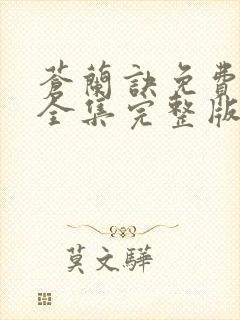 蒼蘭訣免費
全集完整版
莫文驊